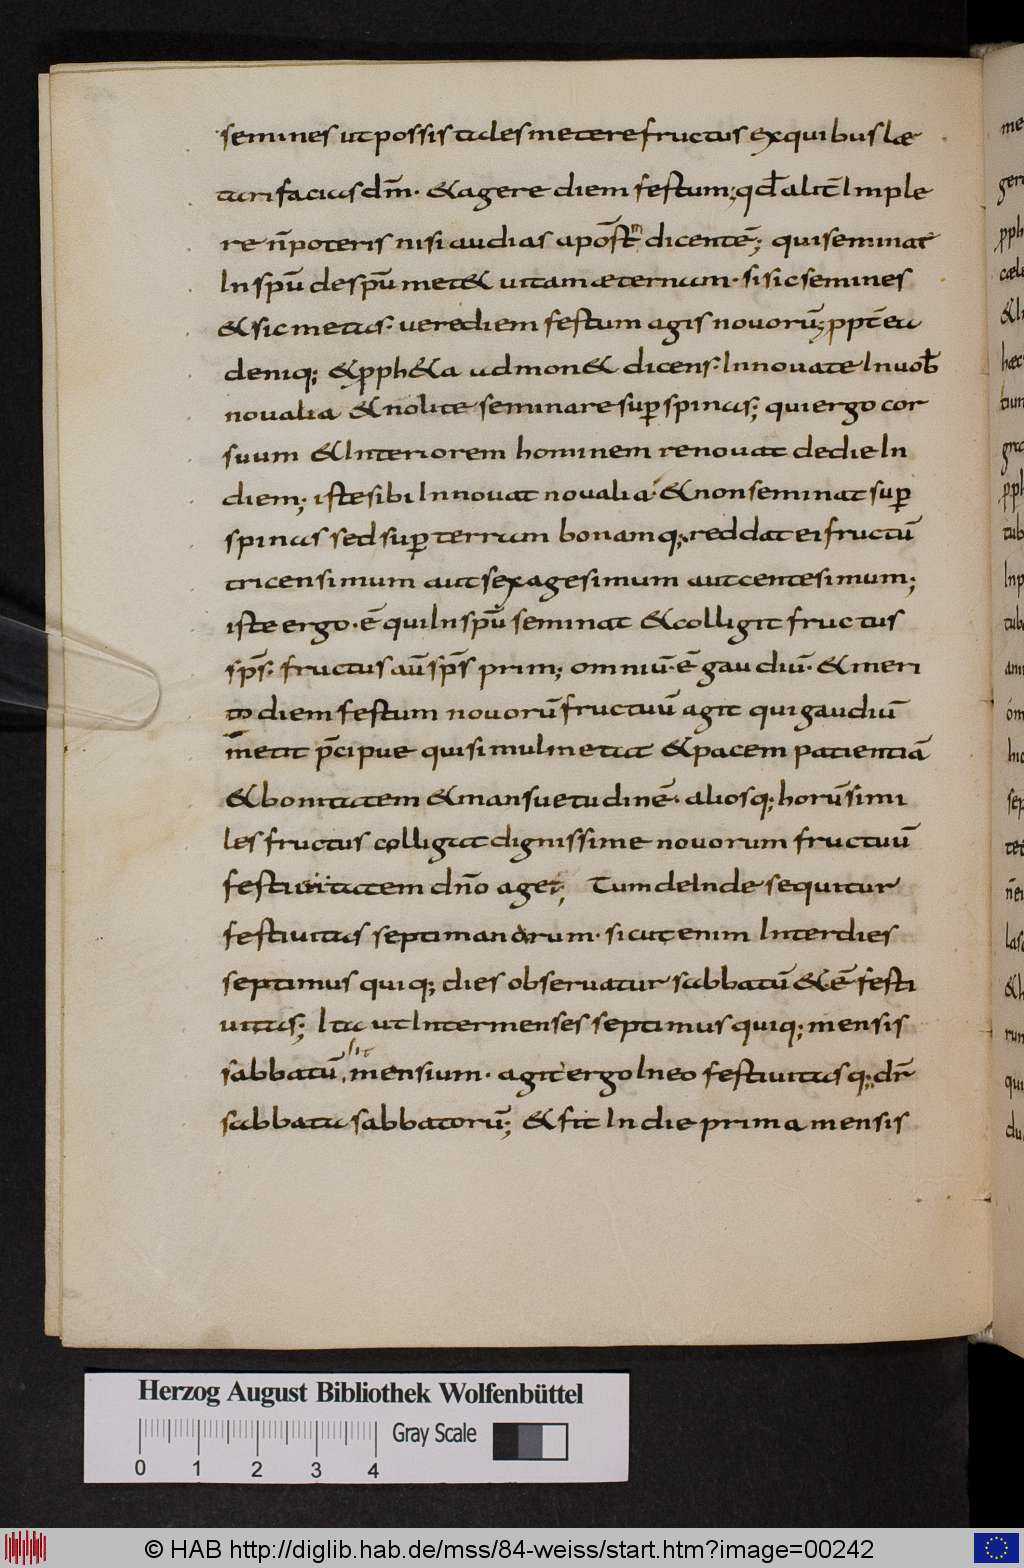 semines ut possis tales metere fructus ex quibus læ
tari facias dm̄· & agere diem festum; qđ alit̄ Imple
re n̄ poteris nisi audias apōstm̄ dicentē; qui seminat
In spū de spū met& uitam æternam· si sic semines
& sic metas· uere diem festum agis nouorū; ppt̄ ea
deniq; & pph&a admon& dicens· Innouate In uob̄
noualia & nolite seminare sup spinas; qui ergo cor
suum & Interiorem hominem renouat de die In
diem; iste sibi Innouat noualia· & non seminat sup
spinas sed sup terram bonam q; reddat ei fructū
tricensimum aut sexagesimum aut centesimum;
iste ergo· ē qui In spū seminat & colligit fructus
sp̄s· fructus aū sp̄s prim; omniū· ē gaudiū· & meri
to diem festum nouorū fructuū agit qui gaudiū
metit p̄cipue qui simul metat & pacem patientiā
& bonitatem & mansuetudinē· aliosq; horū simi
les fructus colligat dignissime nouorum fructuū
festiuitatem dn̄o aget; Tum deInde sequitur
festiuitas septimanarum· sicut enim Inter dies
septimus quiq; dies obseruatur sabbatū & ē festi
uitas; Ita ut Inter menses septimus quiq; mensis
sit
sabbatū mensium· agit ergo In eo festiuitas q; dr̄
sabbata sabbatorū; & fit In die prima mensis
me
gera
pph
cæle
& In
hæc
tum
gra
pph
tub
In p
tuba
ani
om
hic
sep
tet
n̄ ei
las
& h
rum
qui
du
Herzog August Bibliothek Wolfenbüttel
Gray Scale
0 1 2 3 4
© HAB http://diglib.hab.de/mss/84-weiss/start.htm?image=00242